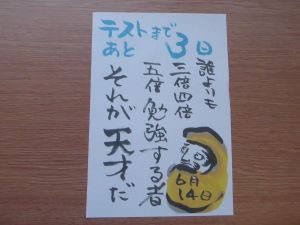 テストまで
あと3日
誰よりも
三倍四倍
五倍勉強する者
それが天才だ
6月
14日